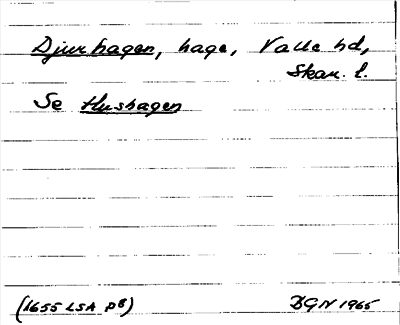 Djurhagen, hage, Valle hd,
Skar. l.
Se Hushagen
(1655 LSA p8) DGN 1965